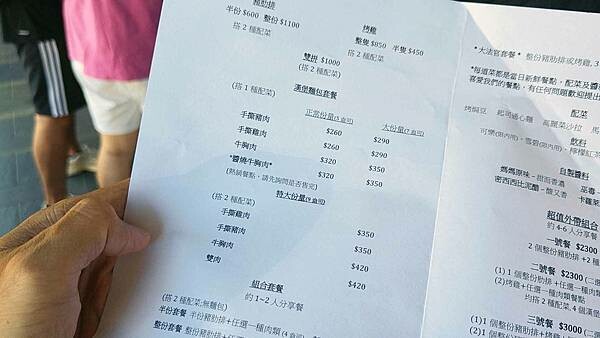 豬肋排
半份 $600 整份 $1100
搭 2 種配菜
烤雞
整隻 $850 半隻 $450
搭 2 種配菜
雙拼 $1000
(搭 2 種配菜)
漢堡麵包套餐
(搭 1 種配菜)
正常份量(5盎司)
大份量(7盎司)
手撕豬肉 $260 $290
手撕雞肉 $260 $290
牛胸肉 $320 $350
*醬燒牛胸肉* $320 $350
(熱銷餐點,請先詢問是否售完)
特大份量(9盎司)
(搭 2 種配菜)
手撕雞肉 $350
手撕豬肉 $350
牛胸肉 $420
雙肉 $420
組合套餐
約 1~2 人分享餐
(搭 2 種配菜;無麵包)
半份套餐 半份豬肋排+任選一種肉類
整份套餐 整份豬肋排+任選一種
*大法官套餐* 整份豬肋排或烤雞, 3
*每道菜都是當日新鮮餐點,配菜及醬
喜愛我們的餐點,有任何問題歡迎提出
配菜
烤焗豆 起司通心麵 高麗菜沙拉 馬
飲料
可樂(限內用)、雪碧(限內用)、檸檬紅茶
自製醬料
媽媽原味 - 甜而香濃 巫毒 -
密西西比泥醬 - 酸又香 卡羅萊
超值外帶組合
約 4-6 人分享餐
一號餐 $2300
2 個整份豬肋排 +2 種
二號餐 $2300 (二選
(1) 1 個整份豬肋排 +任選一種肉類
(2)烤雞+任選一種肉類餐點
均搭 2 種配菜, 4 個漢堡
三號餐 $3000 (二
(1)1 個整份豬肋排+烤雞
(2)1 個整份豬肋排+任選